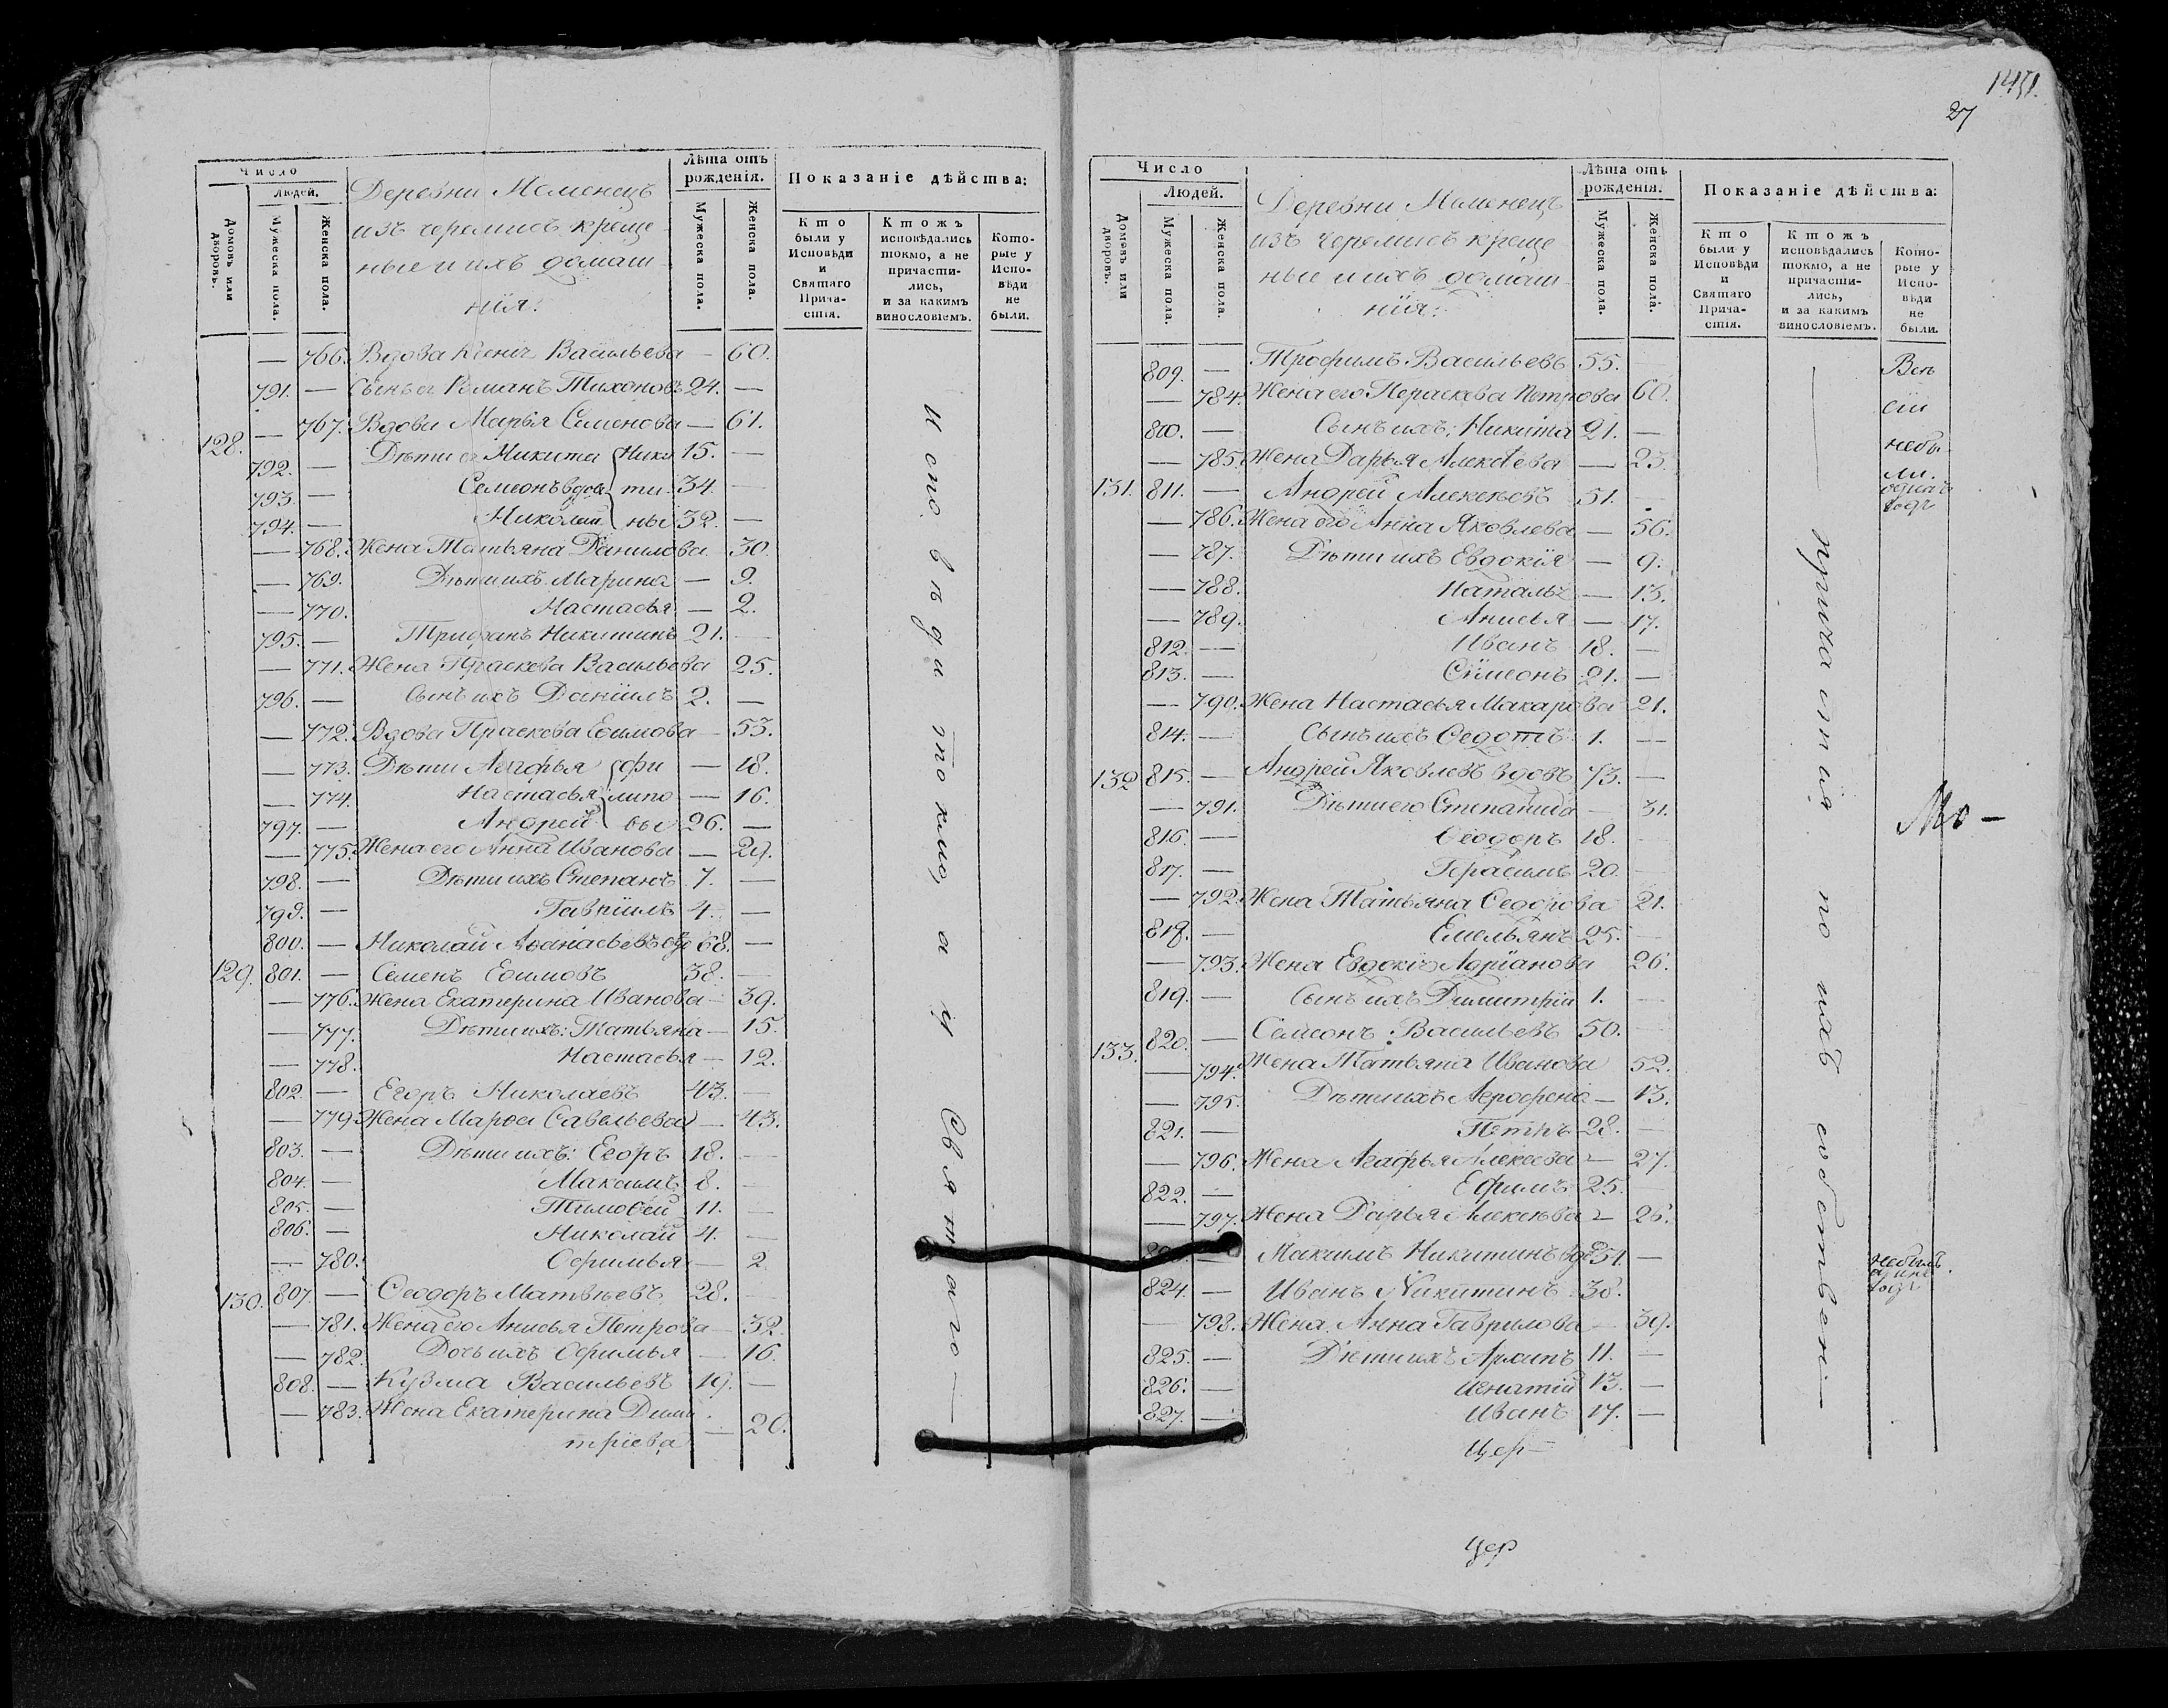 Число
Людей.
Домовъ или дворовъ.
Мужеска пола.
Женска пола.
Деревни Меменецъ
изъ черемисъ креще
ные и ихъ домаш
нія:
Лѣта отъ рожденія.
Мужеска пола.
Женска пола.
Показаніе дѣйства:
Кто были у Исповѣди и Святаго Прича-стія.
Ктожъ исповѣдались токмо, а не причасти-лись, и за какимъ винословіемъ.
Кото-рые у Испо-вѣди не были.
— 766. Вдова Васильева — 60.
791. — Сынъ ея Романъ Тихоновъ 24. —
128. — 767. Вдова Марья Семенова — 61.
792. — Дѣти ея Никита Ники 15. —
793. — Семеонъ вдов ти 34. —
794. — Николай ны 32. —
— 768. Жена Татьяна Данилова 30.
— 769. Дѣти ихъ Марина — 9.
— 770. Настасья — 2.
795. — Никитинъ 21. —
— 771. Жена Праскева Васильева 25.
796. — Сынъ ихъ Даніилъ 2. —
— 772. Вдова Праскева Ефимова — 53.
— 773. Дѣти Агафья фи — 18.
— 774. Настасья липо — 16.
797. — Андрей вы 26. —
— 775. Жена его Анна Иванова — 29.
798. — Дѣти ихъ Степанъ 7. —
799. — Гавріилъ 4. —
800. — Николай Аѳанасьевъ вдо 68. —
129. 801. — Семенъ Еѳимовъ 38. —
— 776. Жена Екатерина Иванова — 39.
— 777. Дѣти ихъ: Татьяна — 15.
— 778. Настасья — 12.
802. — Егоръ Николаевъ 43. —
— 779. Жена Марѳа Савельева — 43.
803. — Дѣти ихъ: Егоръ 18. —
804. — Максимъ 8. —
805. — Тимоѳей 11. —
806. — Николай 4. —
— 780. Офимья — 2
130. 807. — Ѳеодоръ Матвѣевъ 28. —
— 781. Жена его Анисья Петрова — 32.
— 782. Дочь ихъ Офимья — 16.
808. — Кузма Васильевъ 19. —
— 783. Жена Екатерина Дими
тріева — 20.
исповѣди токмо, а у Святаго —
1451.
27
Число
Людей.
Домовъ или дворовъ.
Мужеска пола.
Женска пола.
Деревни Меменецъ
изъ черемисъ креще
ные и ихъ домаш
нія:
Лѣта отъ рожденія.
Мужеска пола.
Женска пола.
Показаніе дѣйства:
Кто были у Исповѣди и Святаго Прича-стія.
Ктожъ исповѣдались токмо, а не причасти-лись, и за какимъ винословіемъ.
Кото-рые у Испо-вѣди не были.
809. — Трофимъ Васильевъ 55. —
— 784. Жена его Пераскева Петрова 60.
810. — Сынъ ихъ: Никита 21. —
— 785. Жена Дарья Алексѣева — 23.
131. 811. — Андрей Алексѣевъ 51. —
— 786. Жена его Анна Яковлева — 56.
— 787. Дѣти ихъ Евдокія — 9.
— 788. Наталья — 13.
— 789. Анисья — 17.
812. — Иванъ 18. —
813. — Сімеонъ 21. —
— 790. Жена Настасья Макарова 21.
814. — Сынъ ихъ Ѳедотъ 1. —
132 815. — Андрей Яковлевъ вдовъ 73. —
— 791. Дѣти его Степанида — 31.
816. — Ѳеодоръ 18. —
817. — Герасимъ 20. —
— 792. Жена Татьяна Ѳедорова 21.
818. — Емельянъ 25. —
— 793. Жена Евдокія Адріанова 26.
819. — Сынъ ихъ Димитрій 1. —
133. 820. — Семеонъ Васильевъ 50. —
— 794. Жена Татьяна Иванова 52.
— 795. Дѣти ихъ — 13.
821. — Петръ 28. —
— 796. Жена Агафья Алексѣева — 27.
822. — Ефимъ 25. —
— 797. Жена Дарья Алексѣева — 26.
— Максимъ Никитинъ вдо 51. —
824. — Иванъ Никитинъ 38.
— 798. Жена Анна Гаврилова — 39.
825. — Дѣти ихъ Архипъ 11. —
826. — Игнатій 13. —
827. — Иванъ 17. —
Цер—
цер
причастія по ихъ собствен—
Всѣ
сіи
небы
ли.
одинъ
годъ
Мо—
Небылъ
одинъ
годъ